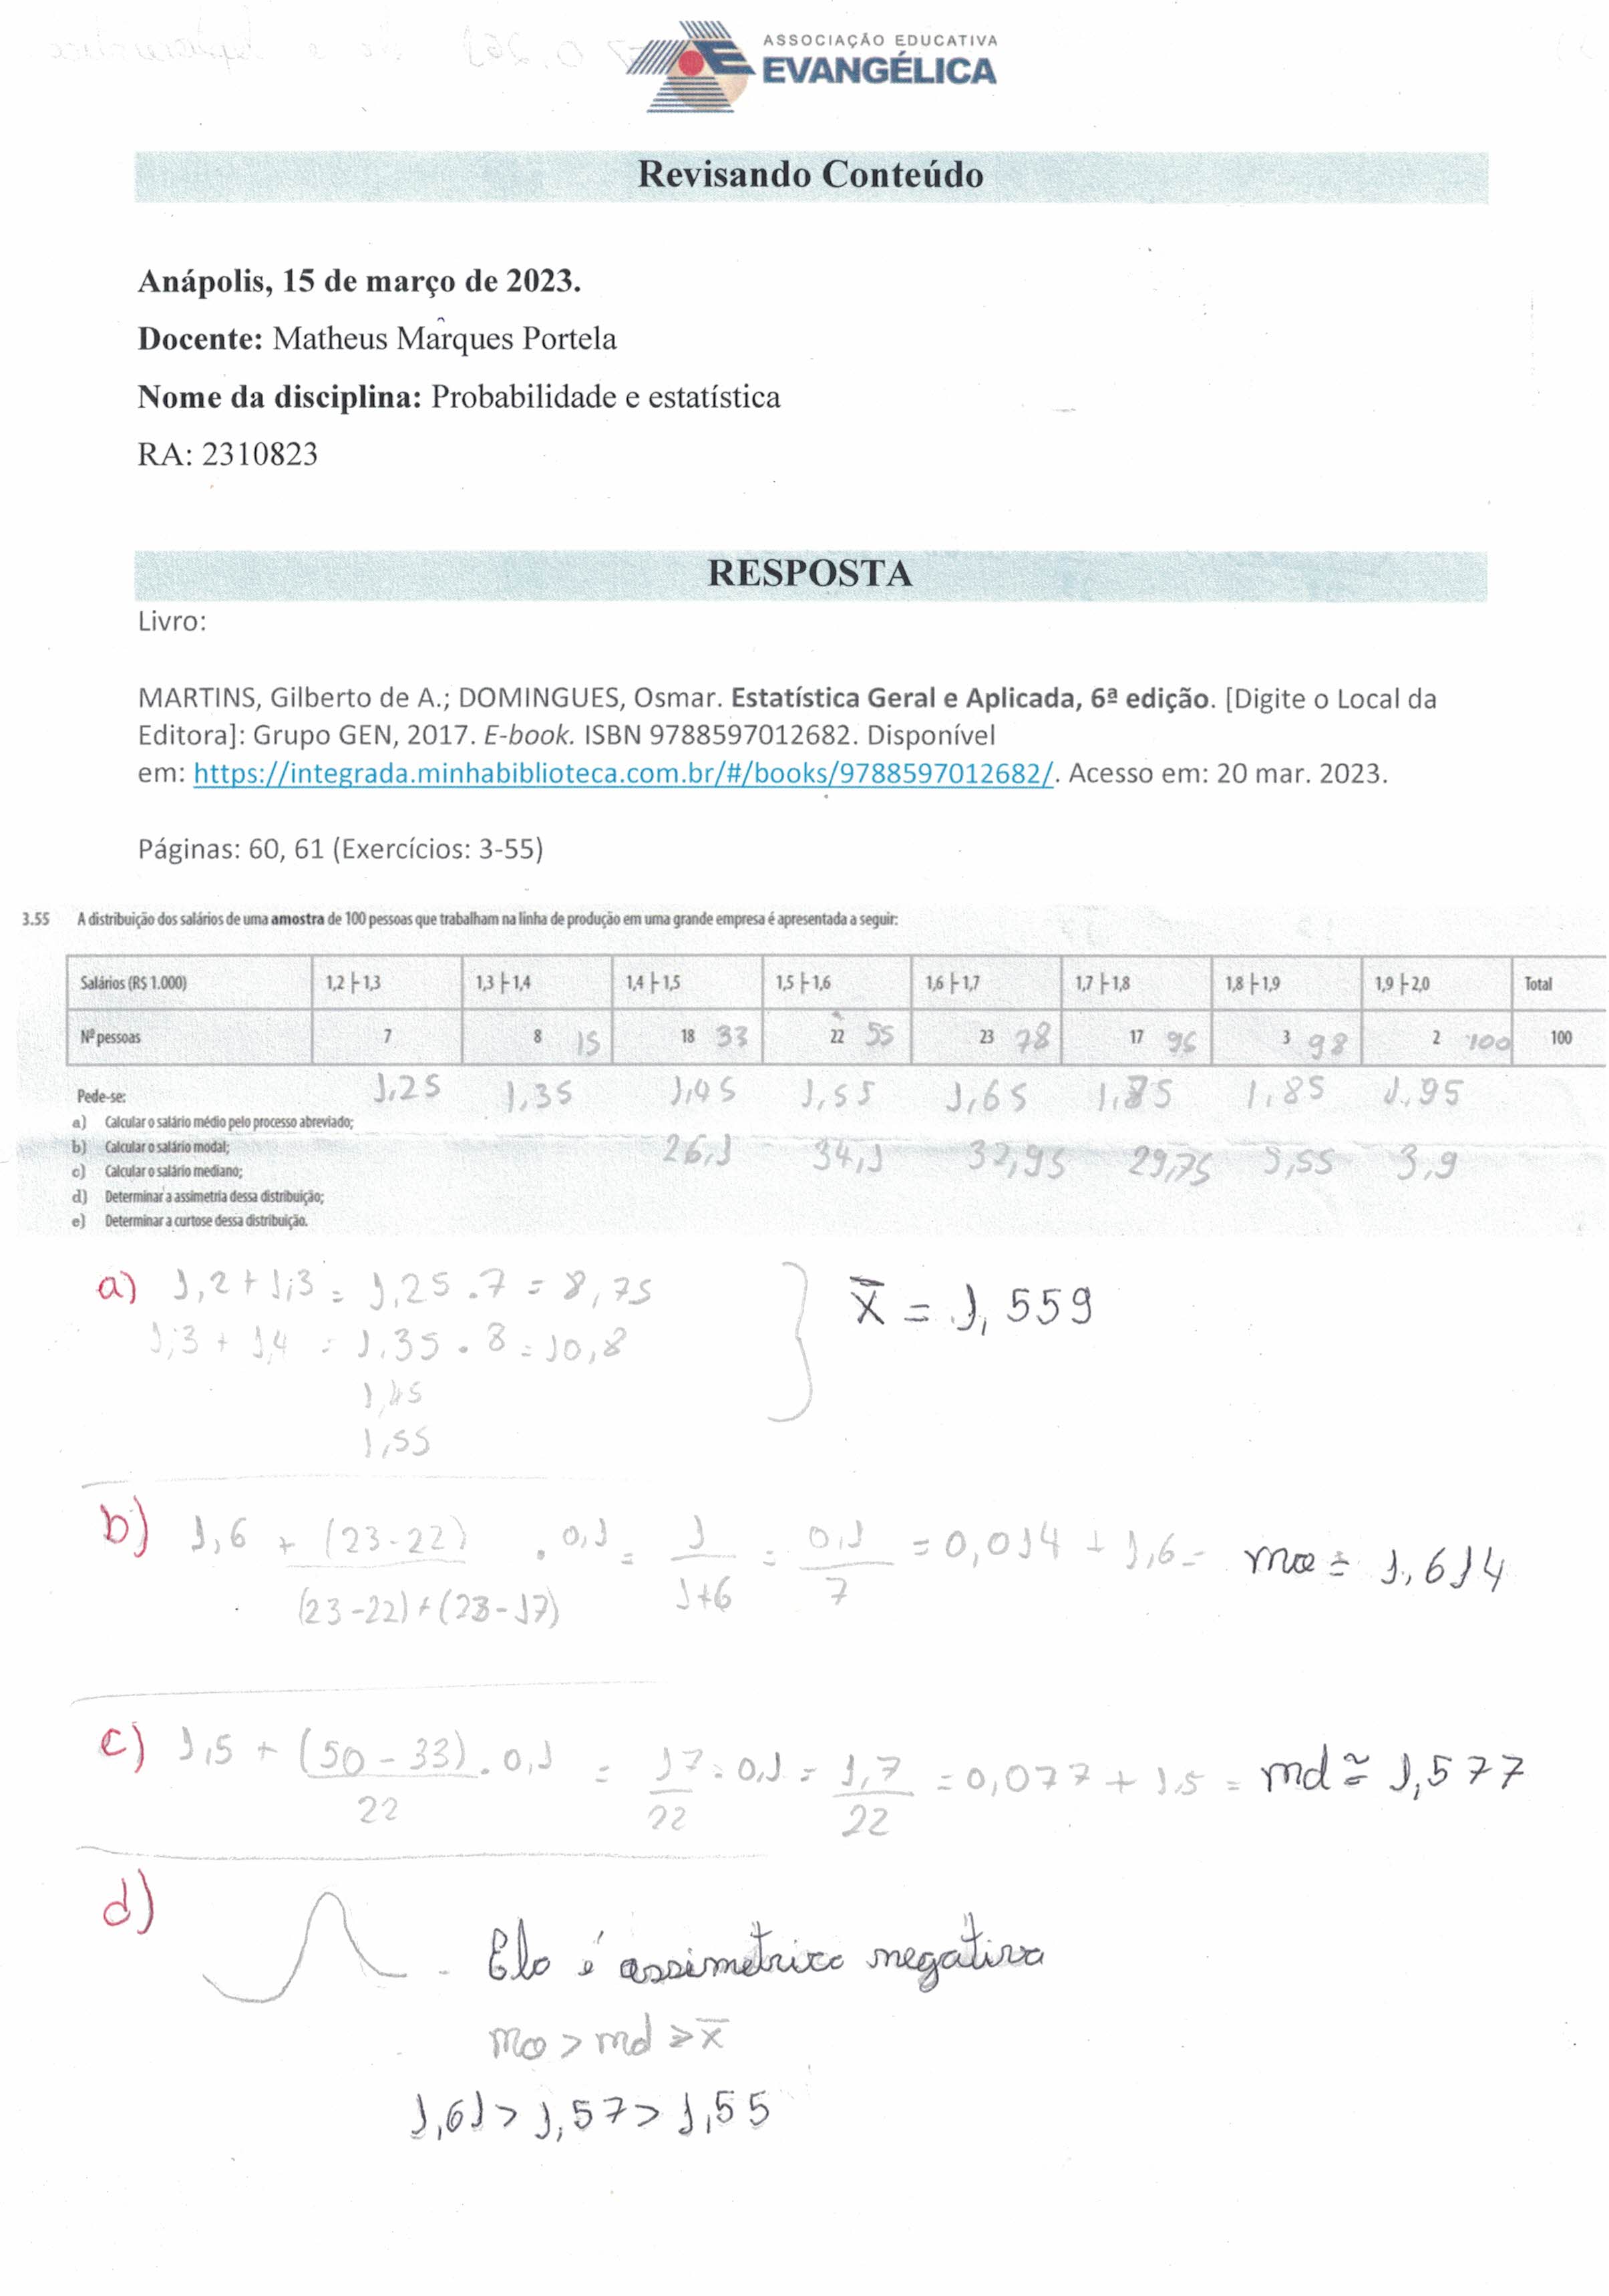 ASSOCIAÇÃO EDUCATIVA
EVANGÉLICA
Revisando Conteúdo
Anápolis, 15 de março de 2023.
Docente: Matheus Marques Portela
Nome da disciplina: Probabilidade e estatística
RA: 2310823
RESPOSTA
Livro:
MARTINS, Gilberto de A.; DOMINGUES, Osmar. Estatística Geral e Aplicada, 6ª edição. [Digite o Local da
Editora]: Grupo GEN, 2017. E-book. ISBN 9788597012682. Disponível
em: https://integrada.minhabiblioteca.com.br/#/books/9788597012682/. Acesso em: 20 mar. 2023.
Páginas: 60, 61 (Exercícios: 3-55)
3.55 A distribuição dos salários de uma amostra de 100 pessoas que trabalham na linha de produção em uma grande empresa é apresentada a seguir:
Salários (R$ 1.000) 1,2 ⊢ 1,3 1,3 ⊢ 1,4 1,4 ⊢ 1,5 1,5 ⊢ 1,6 1,6 ⊢ 1,7 1,7 ⊢ 1,8 1,8 ⊢ 1,9 1,9 ⊢ 2,0 Total
Nº pessoas 7 8 15 18 33 22 55 23 78 17 96 3 98 2 100 100
1,25 1,35 1,45 1,55 1,65 1,85 1,95
Pede-se:
a) Calcular o salário médio pelo processo abreviado;
b) Calcular o salário modal;
26,1 34,1 32,95 29,75 5,55 3,9
c) Calcular o salário mediano;
d) Determinar a assimetria dessa distribuição;
e) Determinar a curtose dessa distribuição.
a) 1,2 + 1,3 = 1,25 . 7 = 8,75
x̅ = 1,559
1,3 + 1,4 = 1,35 . 8 = 10,8
1,45
1,55
b) 1,6 + (23-22) . 0,1 = 1 = 0,1 = 0,014 + 1,6 = mo = 1,614
(23-22) + (23-17) 1+6 7
c) 1,5 + (50 - 33) . 0,1 = 17 . 0,1 = 1,7 = 0,077 + 1,5 = md ≅ 1,577
22 22 22
d) - Ela é assimetrica negativa
mo > md > x̅
1,61 > 1,57 > 1,55